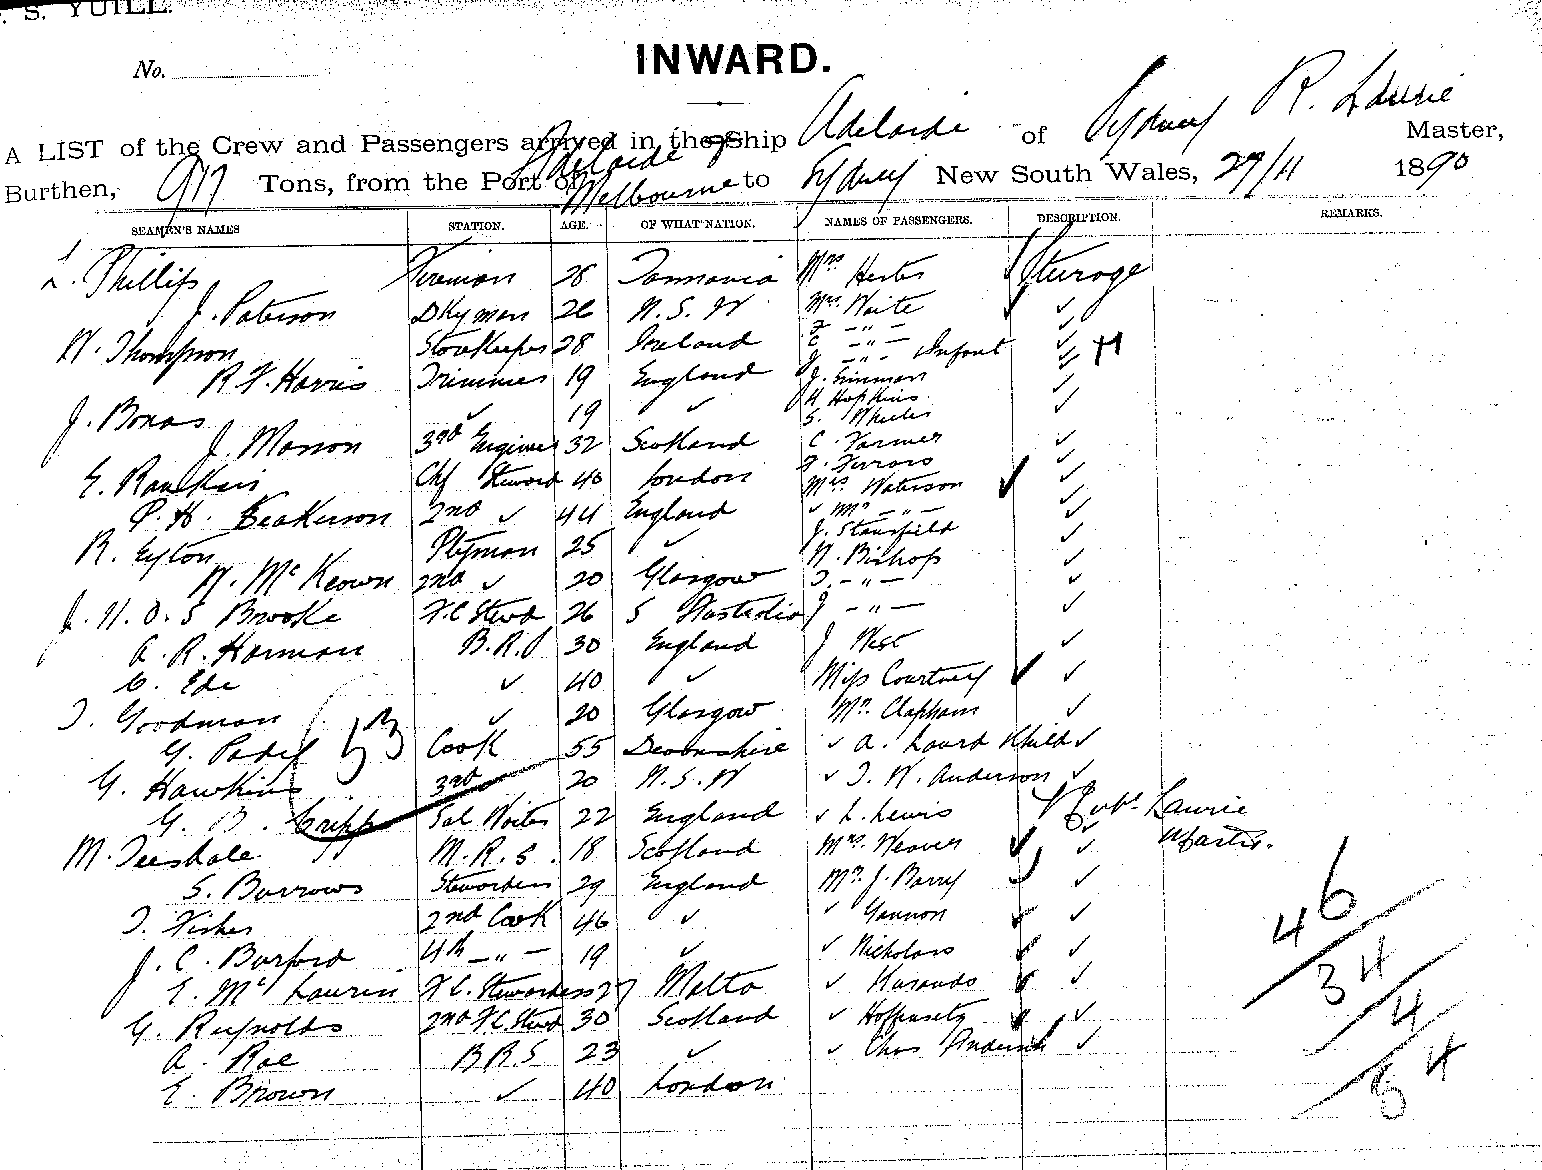 . S. YUILL.
No.
INWARD.
A LIST of the Crew and Passengers arrived in the Ship Adelaide of Sydney R. Laurie Master,
Burthen, 917 Tons, from the Port of Adelaide & Melbourne to Sydney New South Wales, 29/11 1890
SEAMEN'S NAMES STATION. AGE. OF WHAT NATION. NAMES OF PASSENGERS. DESCRIPTION. REMARKS.
L. Phillips Fireman 28 Tasmania Mrs Steerage
J. Paterson Dkyman 26 N. S. W Mrs Waite
W. Thompson Storekeeper 28 Ireland
J -"- Infant
R. F. Harris Trimmer 19 England J.
J. 19 H Hopkins
S. Wheeler
J. Manson 3rd Engineer 32 Scotland C. Farmer
E. Rankin Chf Steward 40 London Mrs Waterson
P. H. 2nd 44 England Mr -"-
R. Eyton Ptyman 25 J. Stansfield
W. McKeown 2nd 20 Glasgow W. Bishop
J. H. O. S Brooke F.C Stewd 26 S Australia J -"-
A. R. Harman B.R.S 30 England J West
C. Ede 40 Miss Courtney
T. Goodman 20 Glasgow Mr. Clapham
53
G. Cook 55 Devonshire A. Laurd Child
G. Hawkins 3rd 20 N. S. W T. W. Anderson
G. B. Cripps Sal Waiter 22 England L. Lewis Robt Laurie
M. Teesdale M. R. S. 18 Scotland Mrs. Weaver Master.
S. Burrows Stewardess 29 England Mr. J. Barry
T. Fisher 2nd Cook 46 Gannon
J. C. Burford 4th -"- 19 Nicholas
E. McLaurin F.C. Stewardess 27 Malta
G. Reynolds 2nd F.C. Stewd 30 Scotland
A. Rae B R S 23 Chas
E. Brown 40 London
46
34
4
84